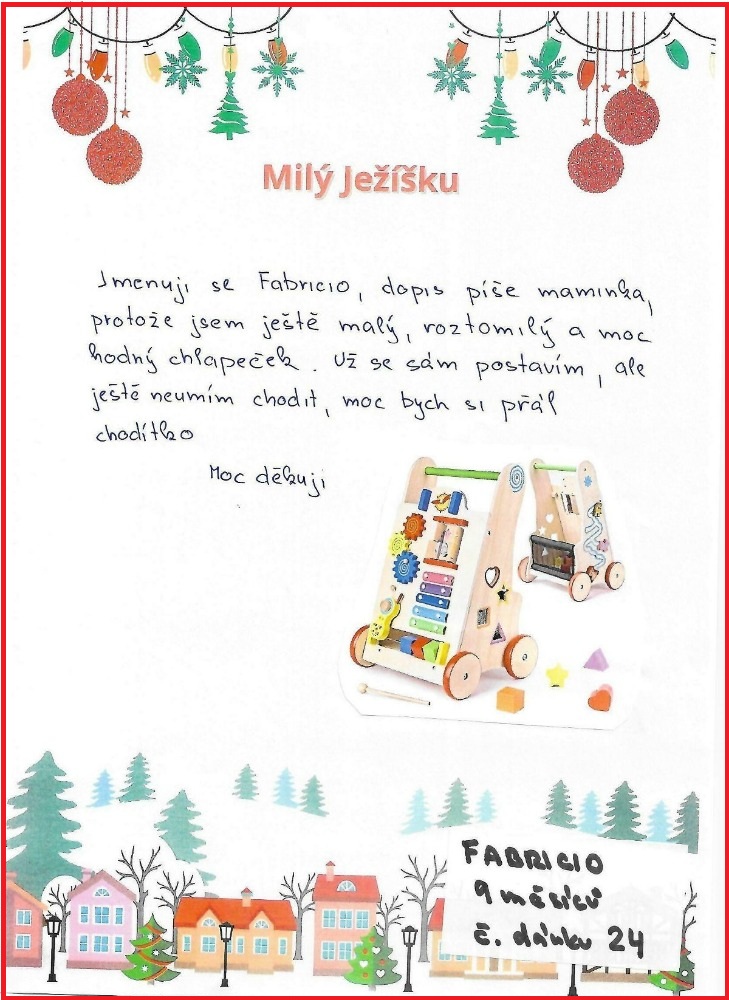 Milý Ježíšku
Jmenuji se Fabricio, dopis píše maminka,
protože jsem ještě malý, roztomilý a moc
hodný chlapeček. Už se sám postavím, ale
ještě neumím chodit, moc bych si přál
chodítko
Moc děkuji
FABRICIO
9 měsíců
č. dárku 24